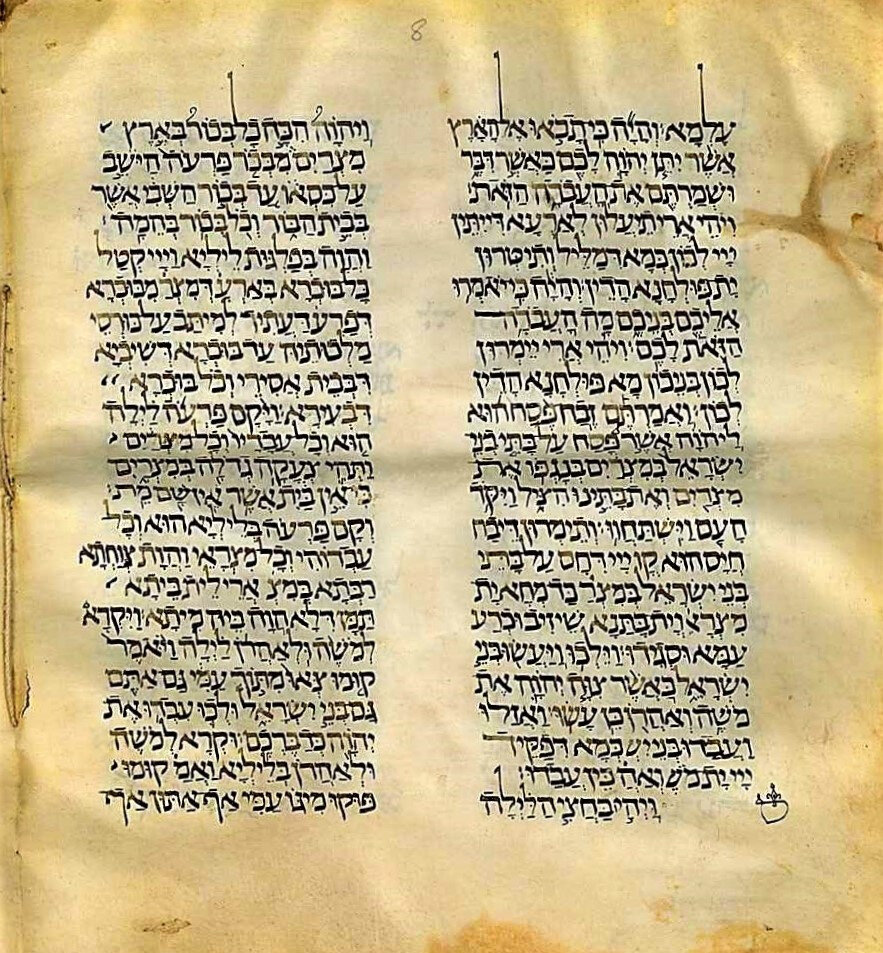 8
עלמא והיה כי תבאו אל הארץ
אשר יתן יהוה לכם כאשר דבר
ושמרתם את העבדה הזאת
ויהי ארי תיעלון לארעא דייתין
ייי לכון כמא דמליל ותיטרון
ית פולחנא הדין והיה כי יאמרו
אליכם בניכם מה העבדה
הזאת לכם ויהי ארי יימרון
לכון בניכון מא פולחנא הדין
לכון ואמרתם זבח פסח הוא
ליהוה אשר פסח על בתי בני
ישראל במצרים בנגפו את
מצרים ואת בתינו הציל ויקד
העם וישתחוו ותימרון דיבח
חייס הוא קדן ייי דחס על בתי
בני ישראל במצר כד מחא ית
מצראי וית בתנא שיזיב וכרע
עמא וסגידו וילכו ויעשו בני
ישראל כאשר צוה יהוה את
משה ואהרן כן עשו ואזלו
ועבדו בני יש כמא דפקיד
ייי ית מש ואה כין עבדו
ויהי בחצי הלילה
ויהוה הכה כל בכור בארץ
מצרים מבכר פרעה הישב
על כסאו עד בכור השבי אשר
בבית הבור וכל בכור בהמה
והוה בפלגות ליליא וייי קטל
כל בוכרא בארע דמצר מבוכרא
דפרע דעתיד למיתב על כורסי
מלכותיה עד בוכרא דשיביא
דבבית אסירי וכל בוכרא
דבעירא ויקם פרעה לילה
הוא וכל עבדיו וכל מצרים
ותהי צעקה גדלה במצרים
כי אין בית אשר אין שם מת
וקם פרעה בליליא הוא וכל
עבדוהי וכל מצראי והות צוחתא
רבתא במצ ארי לית ביתא
תמן דלא הוה ביה מיתא ויקרא
למשה ולאהרן לילה ויאמר
קומו צאו מתוך עמי גם אתם
גם בני ישראל ולכו עבדו את
יהוה כדברכם וקרא למשה
ולאהרן בליליא ואמ קומו
פוקו מיגו עמי אף אתון אף